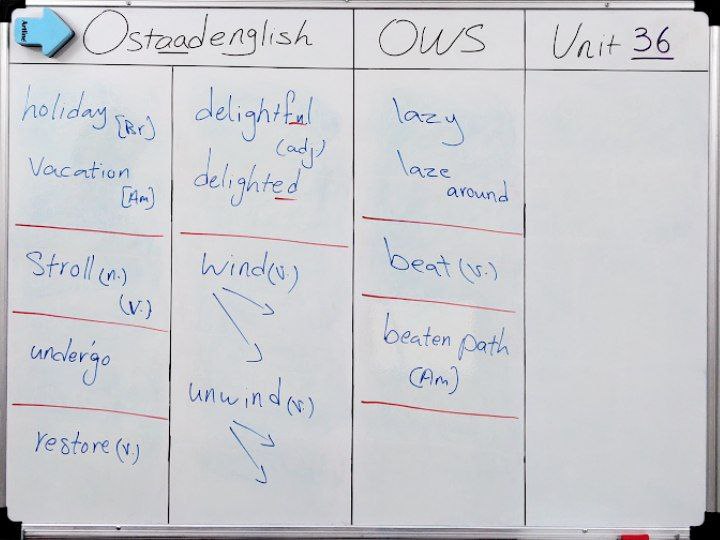 Ostaadenglish
OWS
Unit 36
holiday [Br]
Vacation
[Am]
Stroll (n.)
(v.)
under'go
restore (v.)
delightful
(adj)
delighted
Wind (v.)
unwind (v.)
lazy
laze
around
beat (v.)
beaten path
(Am)